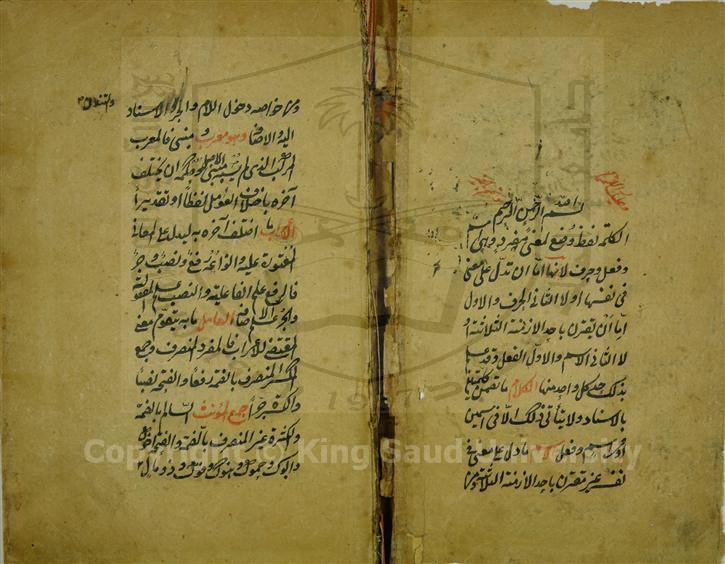 بسم الله الرحمن الرحيم
الكلمة لفظ وضع لمعنى مفرد وهي اسم
وفعل وحرف لانها اما ان تدل على معنى
في نفسها او لا الثاني الحرف والاول
اما ان يقترن باحد الازمنة الثلاثة او
لا الثاني الاسم والاول الفعل وقد علم
بذلك حد كل واحد منها الكلام ما تضمن كلمتين
بالاسناد ولا يتأتى ذلك الا في اسمين
او في اسم وفعل الاسم ما دل على معنى في
نفسه غير مقترن باحد الازمنة الثلاثة ومن
ومن خواصه دخول اللام والجر والاسناد
والتنوين
اليه والاضافة وهو معرب ومبني فالمعرب
المركب الذي لم يشبه مبني الاصل وحكمه ان يختلف
آخره باختلاف العوامل لفظا او تقديرا
الاعراب ما اختلف آخره به ليدل على المعاني
المعتورة عليه وانواعه رفع ونصب وجر
فالرفع علم الفاعلية والنصب علم المفعولية
والجر علم الاضافة العامل ما به يتقوم معنى
المقتضي للاعراب فالمفرد المنصرف والجمع
المكسر المنصرف بالضمة رفعا والفتحة نصبا
والكسرة جرا جمع المؤنث السالم بالضمة
والكسرة غير المنصرف بالضمة والفتحة اخوك
وابوك وحموك وهنوك وفوك وذو مال
Copyright © King Saud University
1957